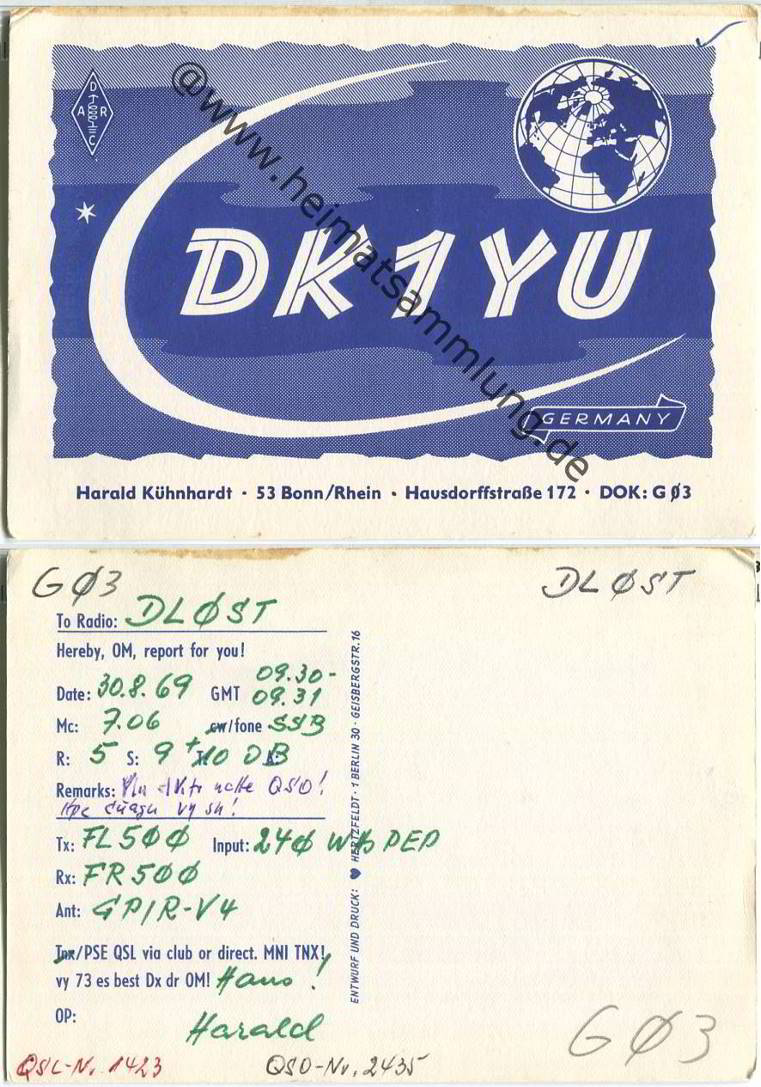 DARC
DK1YU
GERMANY
@www.heimatsammlung.de
Harald Kühnhardt · 53 Bonn/Rhein · Hausdorffstraße 172 · DOK: GØ3
GØ3
DLØST
To Radio: DLØST
Hereby, OM, report for you!
Date: 30.8.69 GMT 09.30-
09.31
Mc: 7.06 cw/fone SSB
R: 5 S: 9 + 10 DB
Remarks: QSO!
Tx: FL500 Input: 240 PEP
Rx: FR500
Ant: GP/R-V4
Tnx/PSE QSL via club or direct. MNI TNX!
vy 73 es best Dx dr OM! Hans!
OP: Harald
QSL-Nr. 1423
QSO-Nr. 2435
GØ3
ENTWURF UND DRUCK: HERTZFELDT · 1 BERLIN 30 · GEISBERGSTR. 16